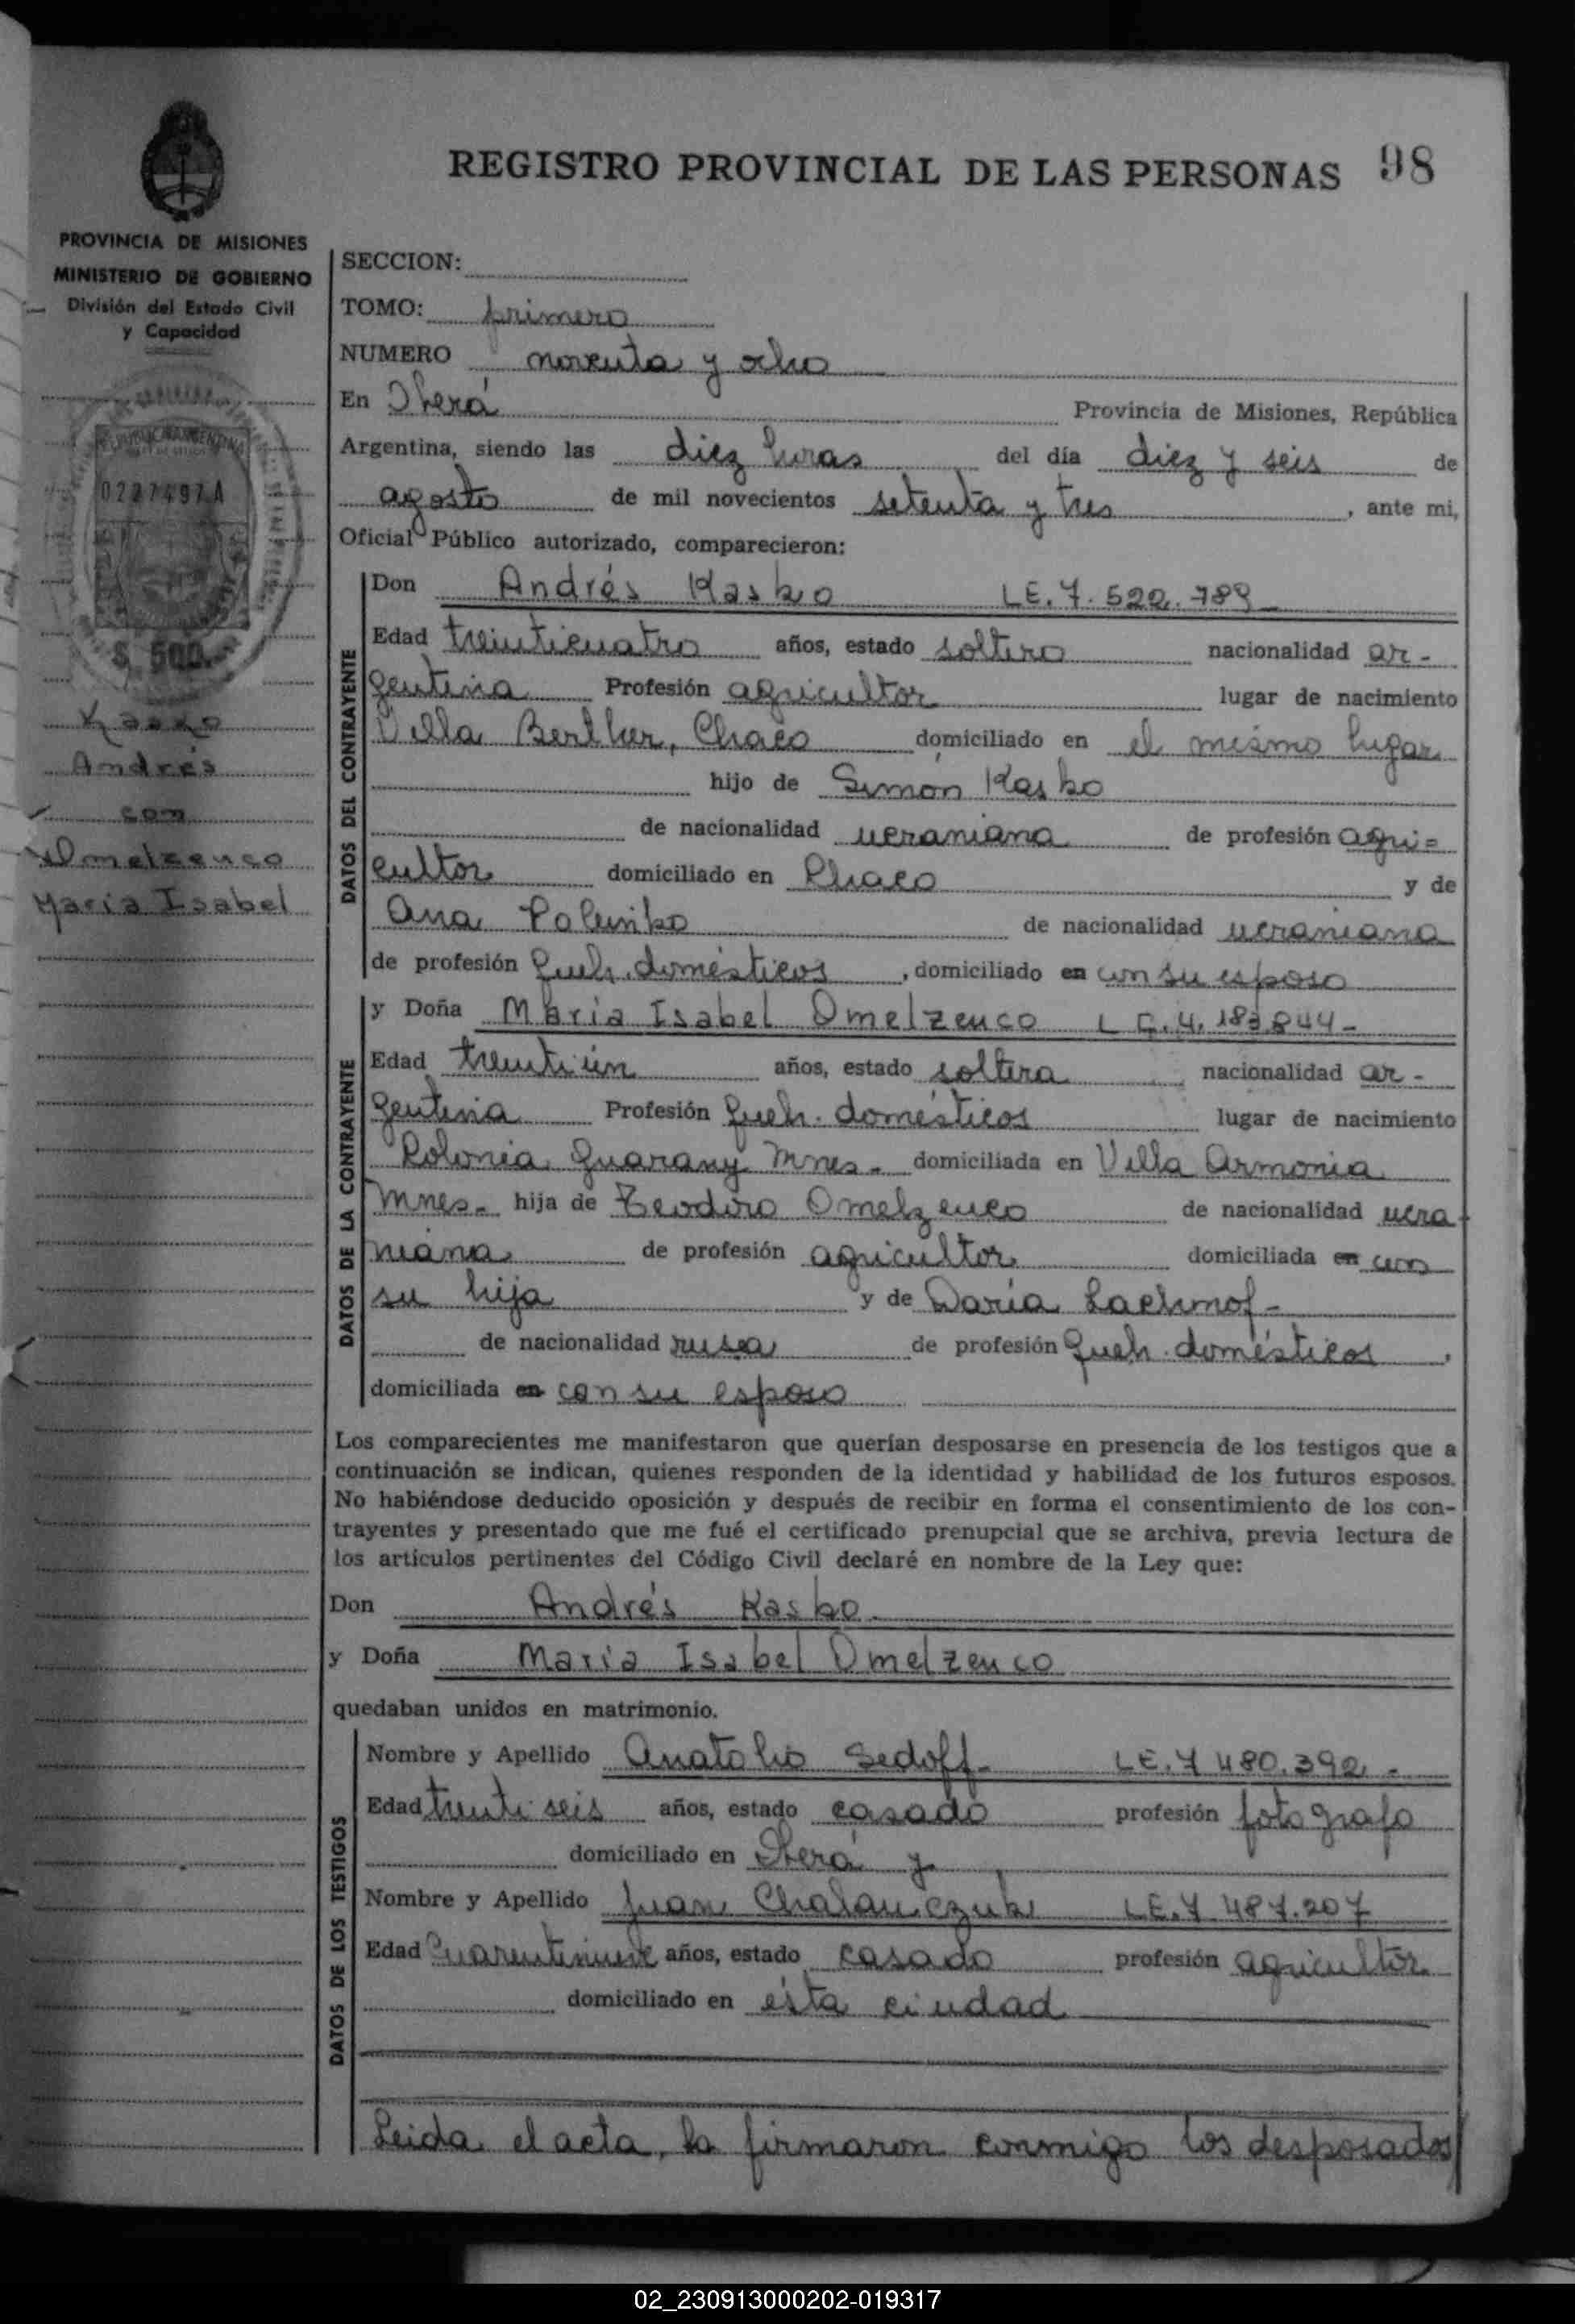 REGISTRO PROVINCIAL DE LAS PERSONAS 98
PROVINCIA DE MISIONES
MINISTERIO DE GOBIERNO
División del Estado Civil
y Capacidad
REPUBLICA ARGENTINA
0227497A
$ 500.-
Kasko
Andrés
con
Omelzenco
Maria Isabel
SECCION:
TOMO: primero
NUMERO noventa y ocho
En Oberá Provincia de Misiones, República
Argentina, siendo las diez horas del día diez y seis de
agosto de mil novecientos setenta y tres, ante mi,
Oficial Público autorizado, comparecieron:
DATOS DEL CONTRAYENTE
Don Andrés Kasko LE. 7.522.789
Edad treinticuatro años, estado soltero nacionalidad ar-
gentina Profesión agricultor lugar de nacimiento
Villa Berthet, Chaco domiciliado en el mismo lugar
hijo de Simón Kasko
de nacionalidad ucraniana de profesión agri=
cultor domiciliado en Chaco y de
Ana de nacionalidad ucraniana
de profesión Queh. domésticos, domiciliado en con su esposo
DATOS DE LA CONTRAYENTE
y Doña Maria Isabel Omelzenco L C. 4. 183.844-
Edad treintiún años, estado soltera nacionalidad ar-
gentina Profesión Queh. domésticos lugar de nacimiento
Colonia Guarany Mnes- domiciliada en Villa Armonia
Mnes- hija de Teodoro Omelzenco de nacionalidad ucra-
niana de profesión agricultor domiciliada en con
su hija y de Daria Lachmof-
de nacionalidad rusa de profesión Queh. domésticos,
domiciliada en con su esposo
Los comparecientes me manifestaron que querían desposarse en presencia de los testigos que a
continuación se indican, quienes responden de la identidad y habilidad de los futuros esposos.
No habiéndose deducido oposición y después de recibir en forma el consentimiento de los con-
trayentes y presentado que me fué el certificado prenupcial que se archiva, previa lectura de
los artículos pertinentes del Código Civil declaré en nombre de la Ley que:
Don Andrés Kasko
y Doña Maria Isabel Omelzenco
quedaban unidos en matrimonio.
DATOS DE LOS TESTIGOS
Nombre y Apellido Anatolio Sedoff- LE. 7 480.392-
Edad treinti seis años, estado casado profesión fotografo
domiciliado en Oberá y
Nombre y Apellido Juan Chalanczuk LE. 7 487.207
Edad Cuarentinueve años, estado casado profesión agricultor
domiciliado en ésta ciudad
Leida el acta, la firmaron conmigo los desposados
02_230913000202-019317